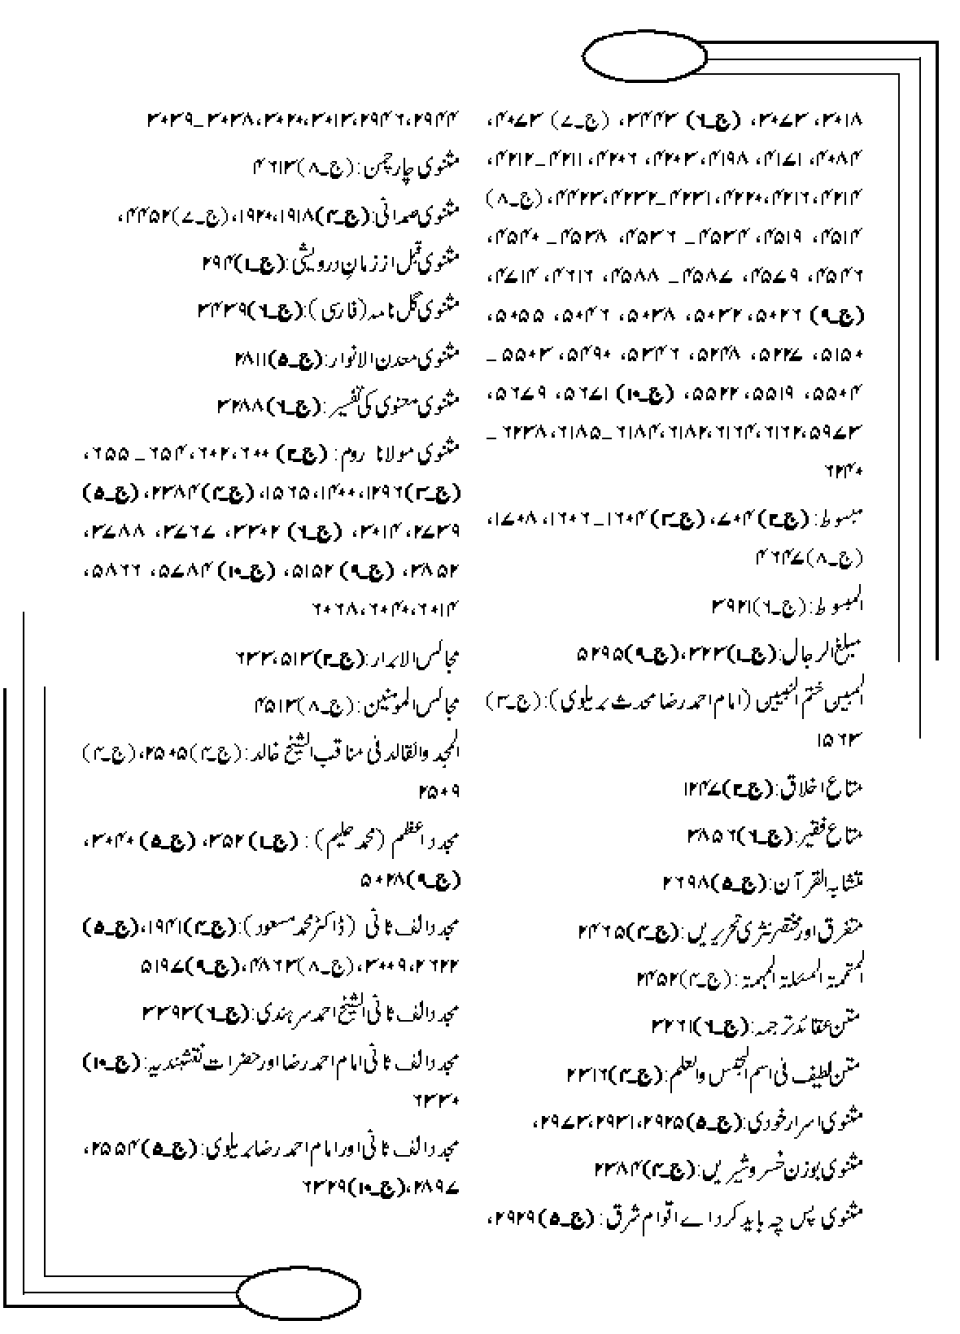 ۳۰۱۸، ۳۰۷۳، (ج۔۶) ۳۴۴۳، (ج۔۷) ۴۰۷۳،
۴۰۸۴، ۴۱۷۱، ۴۱۹۸، ۴۲۰۳، ۴۲۰۶، ۴۲۱۱۔۴۲۱۲،
۴۲۱۴، ۴۲۱۶، ۴۲۲۰، ۴۲۳۱۔۴۲۳۲، ۴۴۲۳، (ج۔۸)
۴۵۱۴، ۴۵۱۹، ۴۵۳۴۔ ۴۵۳۶، ۴۵۳۸۔ ۴۵۴۰،
۴۵۴۶، ۴۵۷۹، ۴۵۸۷۔ ۴۵۸۸، ۴۶۱۶، ۴۷۱۴،
(ج۔۹) ۵۰۲۶، ۵۰۳۲، ۵۰۳۸، ۵۰۴۶، ۵۰۵۵،
۵۱۵۰، ۵۲۲۷، ۵۲۴۸، ۵۳۴۶، ۵۴۹۰، ۵۵۰۳۔
۵۵۰۴، ۵۵۱۹، ۵۵۲۲، (ج۔۱۰) ۵۶۷۱، ۵۶۷۹،
۵۹۷۳، ۶۱۶۲، ۶۱۶۴، ۶۱۸۲، ۶۱۸۴۔ ۶۱۸۵، ۶۲۳۸۔
۶۲۴۰
مبسوط: (ج۔۲) ۷۰۴، (ج۔۳) ۱۶۰۴۔۱۶۰۶، ۱۷۰۸،
(ج۔۸) ۴۶۴۷
المبسوط: (ج۔۶) ۳۹۲۱
مبلغ الرجال: (ج۔۱) ۳۲۳، (ج۔۹) ۵۲۹۵
المبین ختم النبیین (امام احمد رضا محدث بریلوی): (ج۔۳)
۱۵۶۳
متاع اخلاق: (ج۔۲) ۱۲۴۷
متاع فقیر: (ج۔۶) ۳۸۵۶
متشابہ القرآن: (ج۔۵) ۲۶۹۸
متفرق اور مختصر نثری تحریریں: (ج۔۴) ۲۴۶۵
المتحمۃ المسئلۃ المہمۃ: (ج۔۴) ۲۴۵۲
متن عقائد ترجمہ: (ج۔۶) ۳۲۶۱
متن لطیف فی اسم الجنس والعلم: (ج۔۴) ۲۳۱۶
مثنوی اسرار خودی: (ج۔۵) ۲۹۲۵، ۲۹۳۱، ۲۹۷۳،
مثنوی بوزن خسرو شیریں: (ج۔۴) ۲۳۸۴
مثنوی پس چہ باید کرد اے اقوام شرق: (ج۔۵) ۲۹۲۹،
۲۹۴۴، ۲۹۴۶، ۳۰۱۳، ۳۰۲۰، ۳۰۳۸۔۳۰۳۹
مثنوی چارچمن: (ج۔۸) ۴۶۱۳
مثنوی صمدانی: (ج۔۴) ۱۹۱۸، ۱۹۲۰، (ج۔۷) ۴۴۵۲،
مثنوی قبل از زمانِ درویشی: (ج۔۱) ۲۹۴
مثنوی گل نامہ (فارسی): (ج۔۶) ۳۴۳۹
مثنوی معدن الانوار: (ج۔۵) ۲۸۱۱
مثنوی معنوی کی تفسیر: (ج۔۶) ۳۲۸۸
مثنوی مولانا روم: (ج۔۲) ۶۰۰، ۶۰۲، ۶۵۴۔ ۶۵۵،
(ج۔۳) ۱۲۹۶، ۱۴۰۰، ۱۵۶۵، (ج۔۴) ۲۳۸۴، (ج۔۵)
۲۷۳۹، ۳۰۱۴، (ج۔۶) ۳۳۰۲، ۳۷۶۷، ۳۷۸۸،
۳۸۵۲، (ج۔۹) ۵۱۵۲، (ج۔۱۰) ۵۸۷۴، ۵۸۶۶،
۶۰۱۴، ۶۰۴۰، ۶۰۶۸
مجالس الابرار: (ج۔۲) ۵۱۳، ۶۳۳
مجالس المومنین: (ج۔۸) ۴۵۱۳
المجد والقالد فی مناقب الشیخ خالد: (ج۔۴) ۲۵۰۵، (ج۔۴)
۲۵۰۹
مجدد اعظم (محمد حلیم): (ج۔۱) ۳۵۲، (ج۔۵) ۳۰۴۰،
(ج۔۹) ۵۰۲۸
مجدد الف ثانی (ڈاکٹر محمد مسعود): (ج۔۴) ۱۹۴۱، (ج۔۵)
۲۶۲۲، ۳۰۰۹، (ج۔۸) ۴۸۶۳، (ج۔۹) ۵۱۹۷
مجدد الف ثانی الشیخ احمد سرہندی: (ج۔۶) ۳۳۹۳
مجدد الف ثانی امام احمد رضا اور حضرات نقشبندیہ: (ج۔۱۰)
۶۳۳۰
مجدد الف ثانی اور امام احمد رضا بریلوی: (ج۔۵) ۲۵۵۴،
۲۸۹۷، (ج۔۱۰) ۶۳۲۹